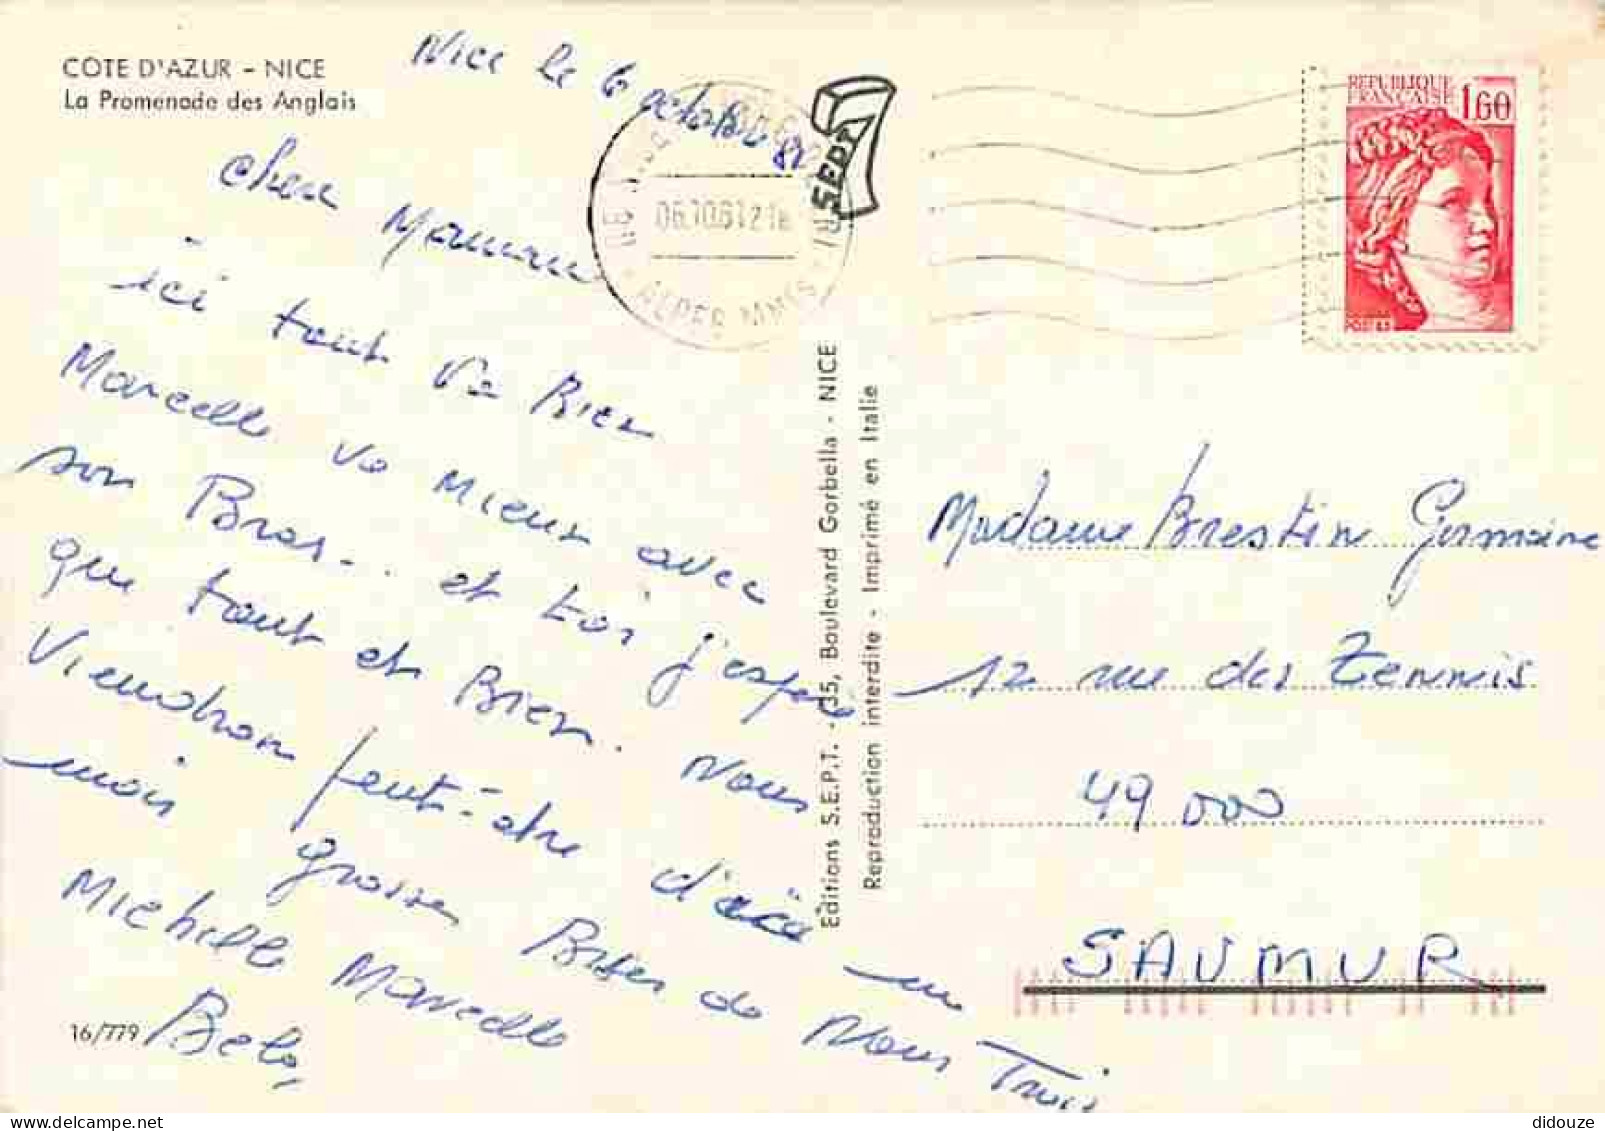 COTE D'AZUR - NICE
La Promenade des Anglais
Nice le 6 octobre 81
chere Maman
ici tout va Bien
Marcelle va mieux avec
son Bras.. et toi j'espere
que tout et Bien. Nous
Viendron peut-être d'ici un
mois grosses Bises de Nous Trois
Michelle Marcelle
Bela,
16/779
ALPES MMES
SEPT
Editions S.E.P.T. - 35, Boulevard Gorbella - NICE
Reproduction interdite - Imprimé en Italie
REPUBLIQUE
FRANCAISE
1,60
POSTES
Madame Brestin Germaine
12 rue des Tennis
49 000
SAUMUR
didouze